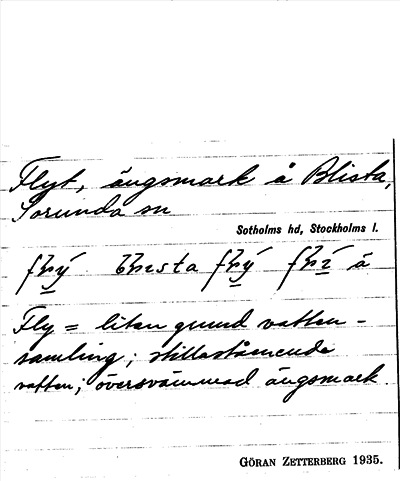 Flyt, ängsmark å Blista,
Sorunda sn
Sotholms hd, Stockholms l.
å
Fly = liten grund vatten-
samling; stillastående
vatten; översvämmad ängsmark.
GÖRAN ZETTERBERG 1935.